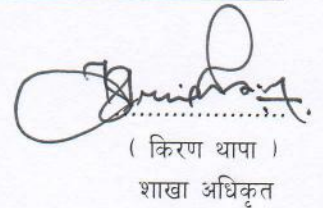 ( किरण थापा )
शाखा अधिकृत